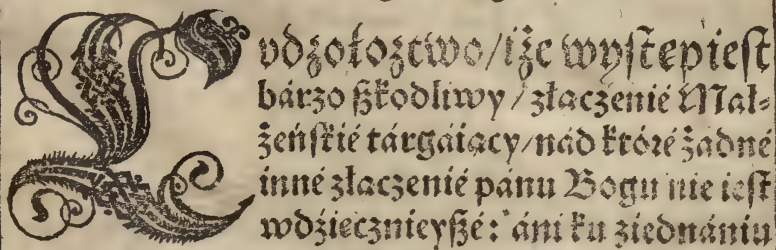 Cvdzołoztwo/ iże występ iest
bárzo szkodliwy/ złączenié Mał⸗
żeńskié tárgáiący/ nád któré żadné
inné złączenié pánu Bogu nie iest
wdzięcznieyszé: áni ku ziednániu